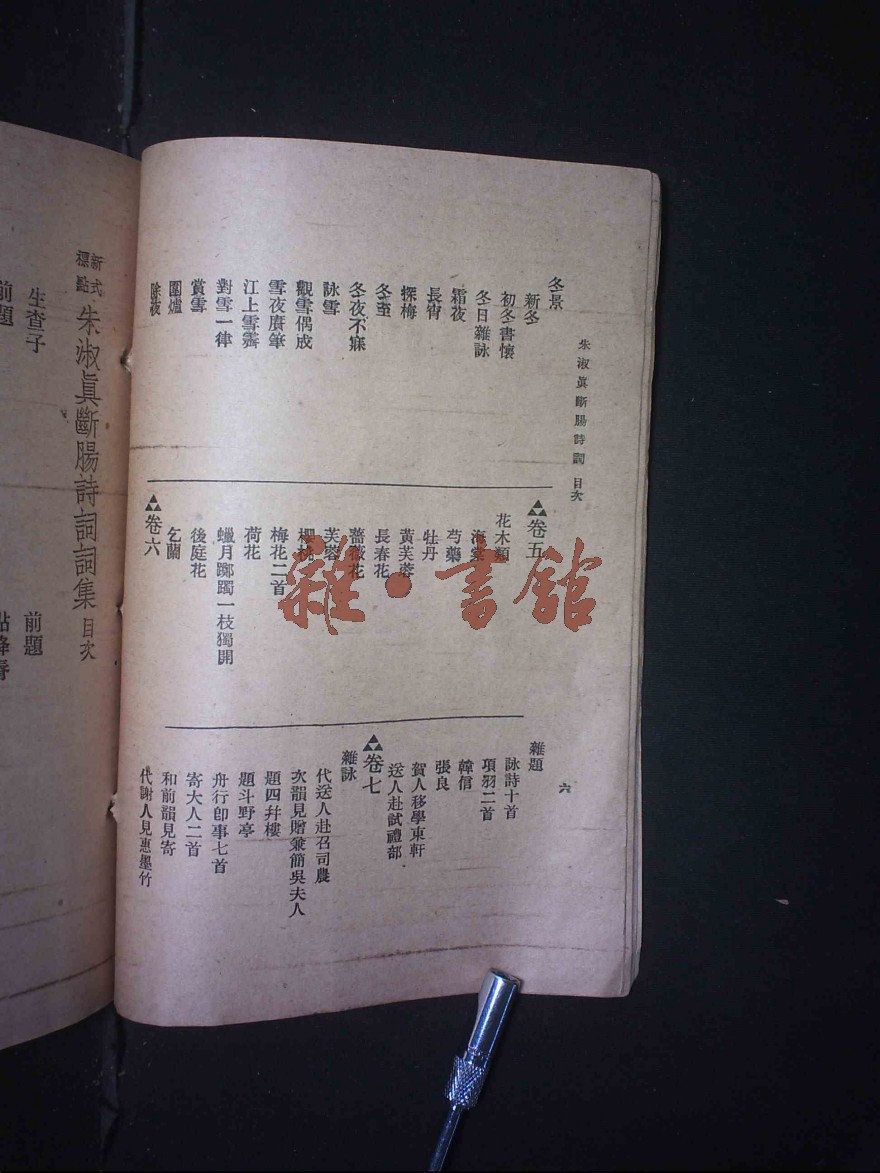 朱淑眞斷腸詩詞 目次
六
冬景
新冬
初冬書懷
冬日雜詠
霜夜
長宵
探梅
冬至
冬夜不寐
詠雪
觀雪偶成
雪夜賡筆
江上雪霽
對雪一律
賞雪
圍爐
除夜
卷五
花木類
海棠
芍藥
牡丹
黃芙蓉
長春花
薔薇花
芙蓉
櫻桃
梅花二首
荷花
蠟月躑躅一枝獨開
後庭花
乞蘭
卷六
雜題
詠詩十首
項羽二首
韓信
張良
賀人移學東軒
送人赴試禮部
卷七
雜詠
代送人赴召司農
次韻見贈兼簡吳夫人
題四幷樓
題斗野亭
舟行卽事七首
寄大人二首
和前韻見寄
代謝人見惠墨竹
新式標點 朱淑眞斷腸詩詞詞集 目次
生查子
前題
前題
點絳脣
雜·書館